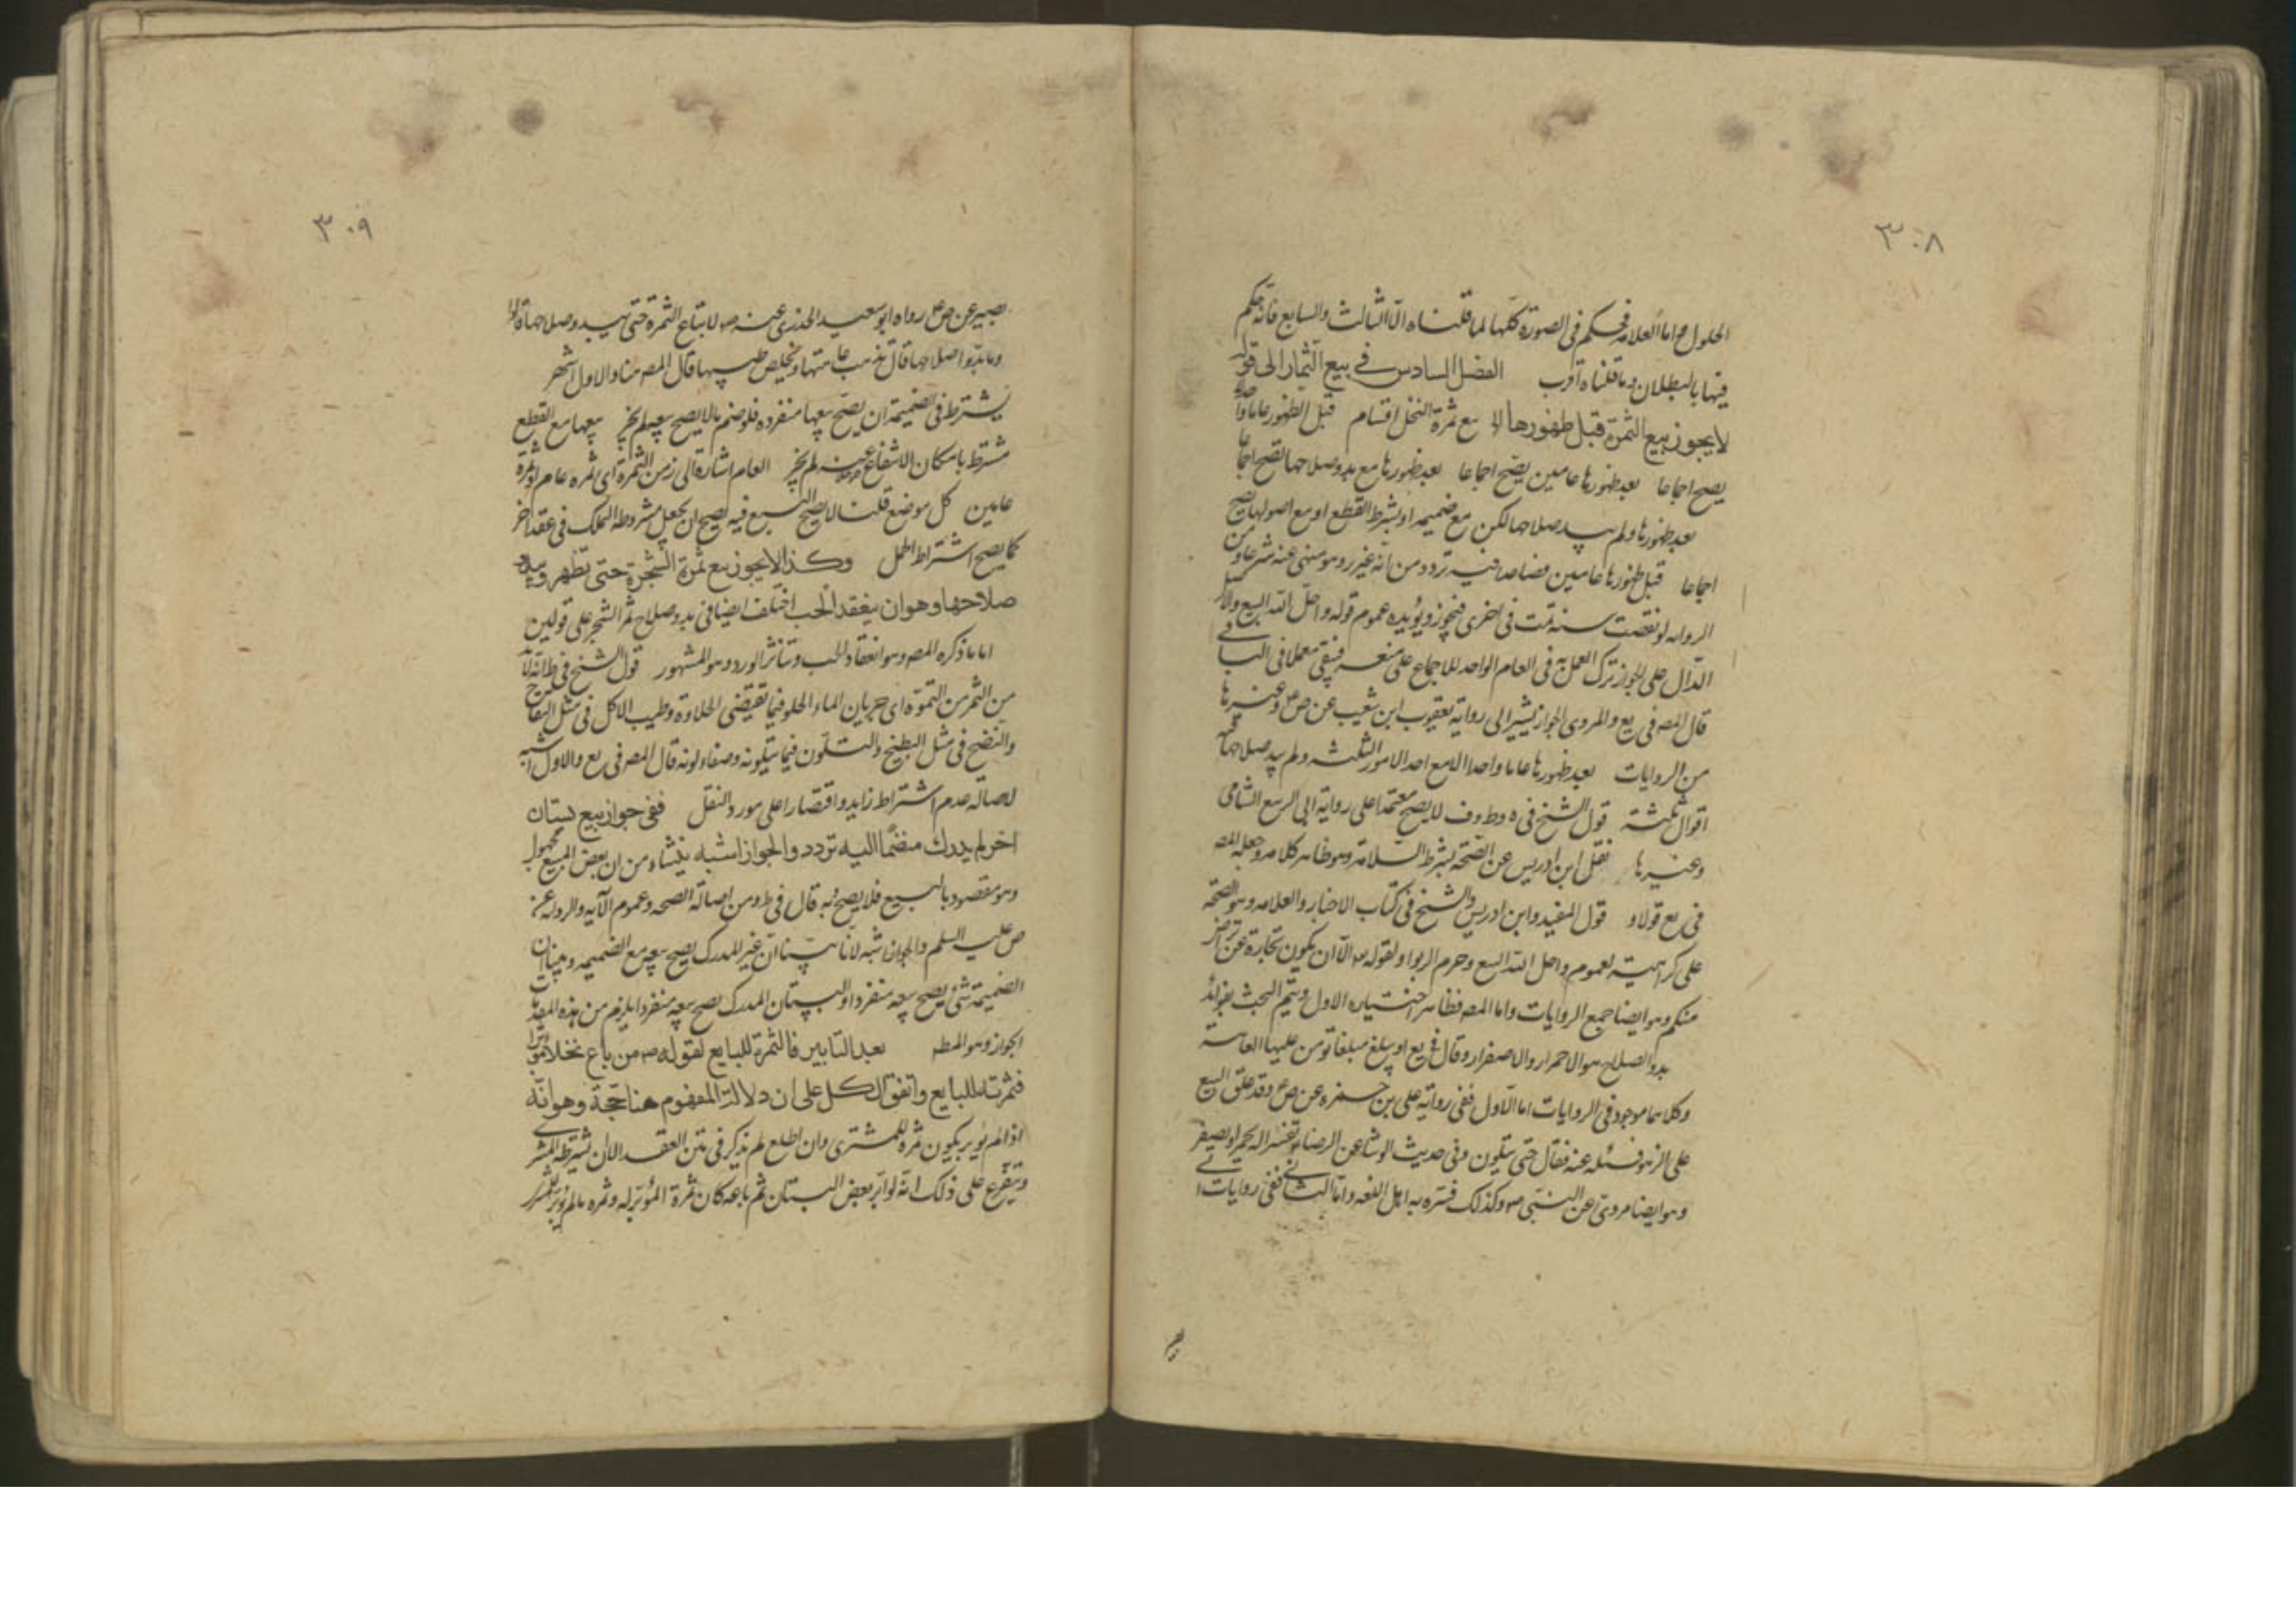 ٣٠٨
الحلول ح اما العلامه فحكم فى الصورة كلّها لما قلناه الّا الثالث والسابع فانّه حكم
فيها بالبطلان وما قلناه اقرب الفصل السادس فى بيع الثمار الى قوله
لايجوز بيع الثمرة قبل ظهورها الا بيع ثمرة النخل اقسام قبل الظهور عاما واحدا لا
يصح اجماعا بعد ظهورها عامين يصح اجماعا بعد ظهورها مع بدو صلاحها تصح اجماعا
بعد ظهورها ولم يبد صلاحها لكن مع ضميمه او بشرط القطع او مع اصولها يصح
اجماعا قبل ظهورها عامين فصاعدا فيه تردد من انّه غرر وهو منهى عنه شرعا ومن
الروايه لو نقصت سنه تمت فى اخرى فيجوز ويؤيده عموم قوله واحلّ اللّه البيع
الدّال على الجواز ترك العمل به فى العام الواحد للاجماع على منعه فيبقى معملا فى الباقى
قال المصه فى يع والمروى الجواز يشير الى رواية يعقوب ابن شعيب عن ص ع وغيرها
من الروايات بعد ظهورها عاما واحدا لا مع احد الامور الثلثه ولم يبد صلاحها فيه
اقوال ثلثة قول الشيخ فى ه وط وف لا يصح معتمدا على رواية ابى الربيع الشامى
وغيرها نقل ابن ادريس عن الصحّه بشرط السّلامة وهو ظاهر كلامه وجعله المصه
فى يع قولا و قول المفيد وابن ادريس والشيخ فى كتاب الاخبار والعلامه وهو الصّحّه
على كراهية لعموم واحل اللّه البيع وحرم الربوا ولقوله الّا ان يكون تجارة عن تراض
منكم وهو ايضا جمع الروايات واما المصه فظاهر اختياره الاول ويتم البحث بفوائد
بدو الصلاح هو الاحمرار والاصفرار وقال فى يع او يبلغ مبلغا يؤمن عليها العاهة
وكلاهما موجود فى الروايات اما الاول ففى رواية على بن حمزه عن ص ع وقد علق البيع
على الزهو فسئله عنه فقال حتى يتلون وفى حديث الوشا عن الرضا ع تفسيره ان يحمر او يصفر
وهو ايضا مروىّ عن النّبى ص وكذلك فسّره به اهل اللغه وامّا الثانى ففى روايات ا
بصير
٣٠٩
بصير عن ص ع رواه ابو سعيد الخدرى عنه ص لا تبتاع الثمرة حتى يبدو صلاحها قالوا
وما بدّو اصلاحها قال تذهب عاهتها ويخلص طيبها قال المصه هنا والاول اشهر
يشترط فى الضميمة ان يصّح بيعها منفرده فلو ضم ما لا يصح بيعه لم يجز بيعها مع القطع
مشترط بامكان الانتفاع لم يجز العام اشارة الى زمن الثمرة اى ثمره عام او ثمرة
عامين كل موضع قلنا لا يصح البيع فيه يصح ان يجعل مشروطه التملك فى عقد اخر
كما يصح اشتراط الحمل وكذا لايجوز بيع ثمرة الشجرة حتى تظهر ويبدو
صلاحها وهو ان ينعقد الحب اختلف ايضا فى بدو صلاح ثمر الشجر على قولين
اما ما ذكره المصه وهو انعقاد الحب وتناثر الورد وهو المشهور قول الشيخ فى ط انّه
من الثمر من التموّه اى جريان الماء الحلو فيما تقتضى الحلاوة وطيب الاكل فى مثل التفاح
والنضج فى مثل البطيخ والتلّون فيما يتلونه وصفاء لونه قال المصه فى يع والاول اشبه
لاصاله عدم اشتراط زايد واقتصارا على مورد النقل ففى جواز بيع بستان
اخر لم يدرك منضمًا اليه تردد والجواز اشبه ينشاء من ان بعض المبيع مجهول
وهو مقصود بالبيع فلا يصح به قال فى ط ومن اصالة الصحه وعموم الآيه والروايه عن
ص عليه السلم والجواز اشبه لانّا بيّنا انّ غير المدرك يصح بيعه مع الضميمه وبينا ان
الضميمة شئ يصح بيعه منفردا والبستان المدرك يصح بيعه منفردا يلزم من هذه المقدمات
الجواز وهو المطه بعد التابير فالثمرة للبايع لقوله ص من باع نخلا مؤبّرا
فثمرته للبايع واتفق الكل على ان دلالة المفهوم هنا حجّة وهو انّه
اذا لم يؤبر يكون ثمره للمشترى وان اطلع لم يذكر فى متن العقد الا ان يشترطه المشترى
ويتفرّع على ذلك انّه لو ابّر بعض البستان ثم باعه كان ثمرة المؤبّر له وثمره ما لم يؤبّر للمشترى